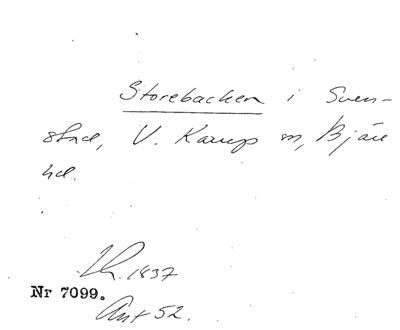 Storebacken i Sven-
stad, V. Karup sn, Bjäre
hd.
Lh. 1837
Nr 7099.
Ant 52.